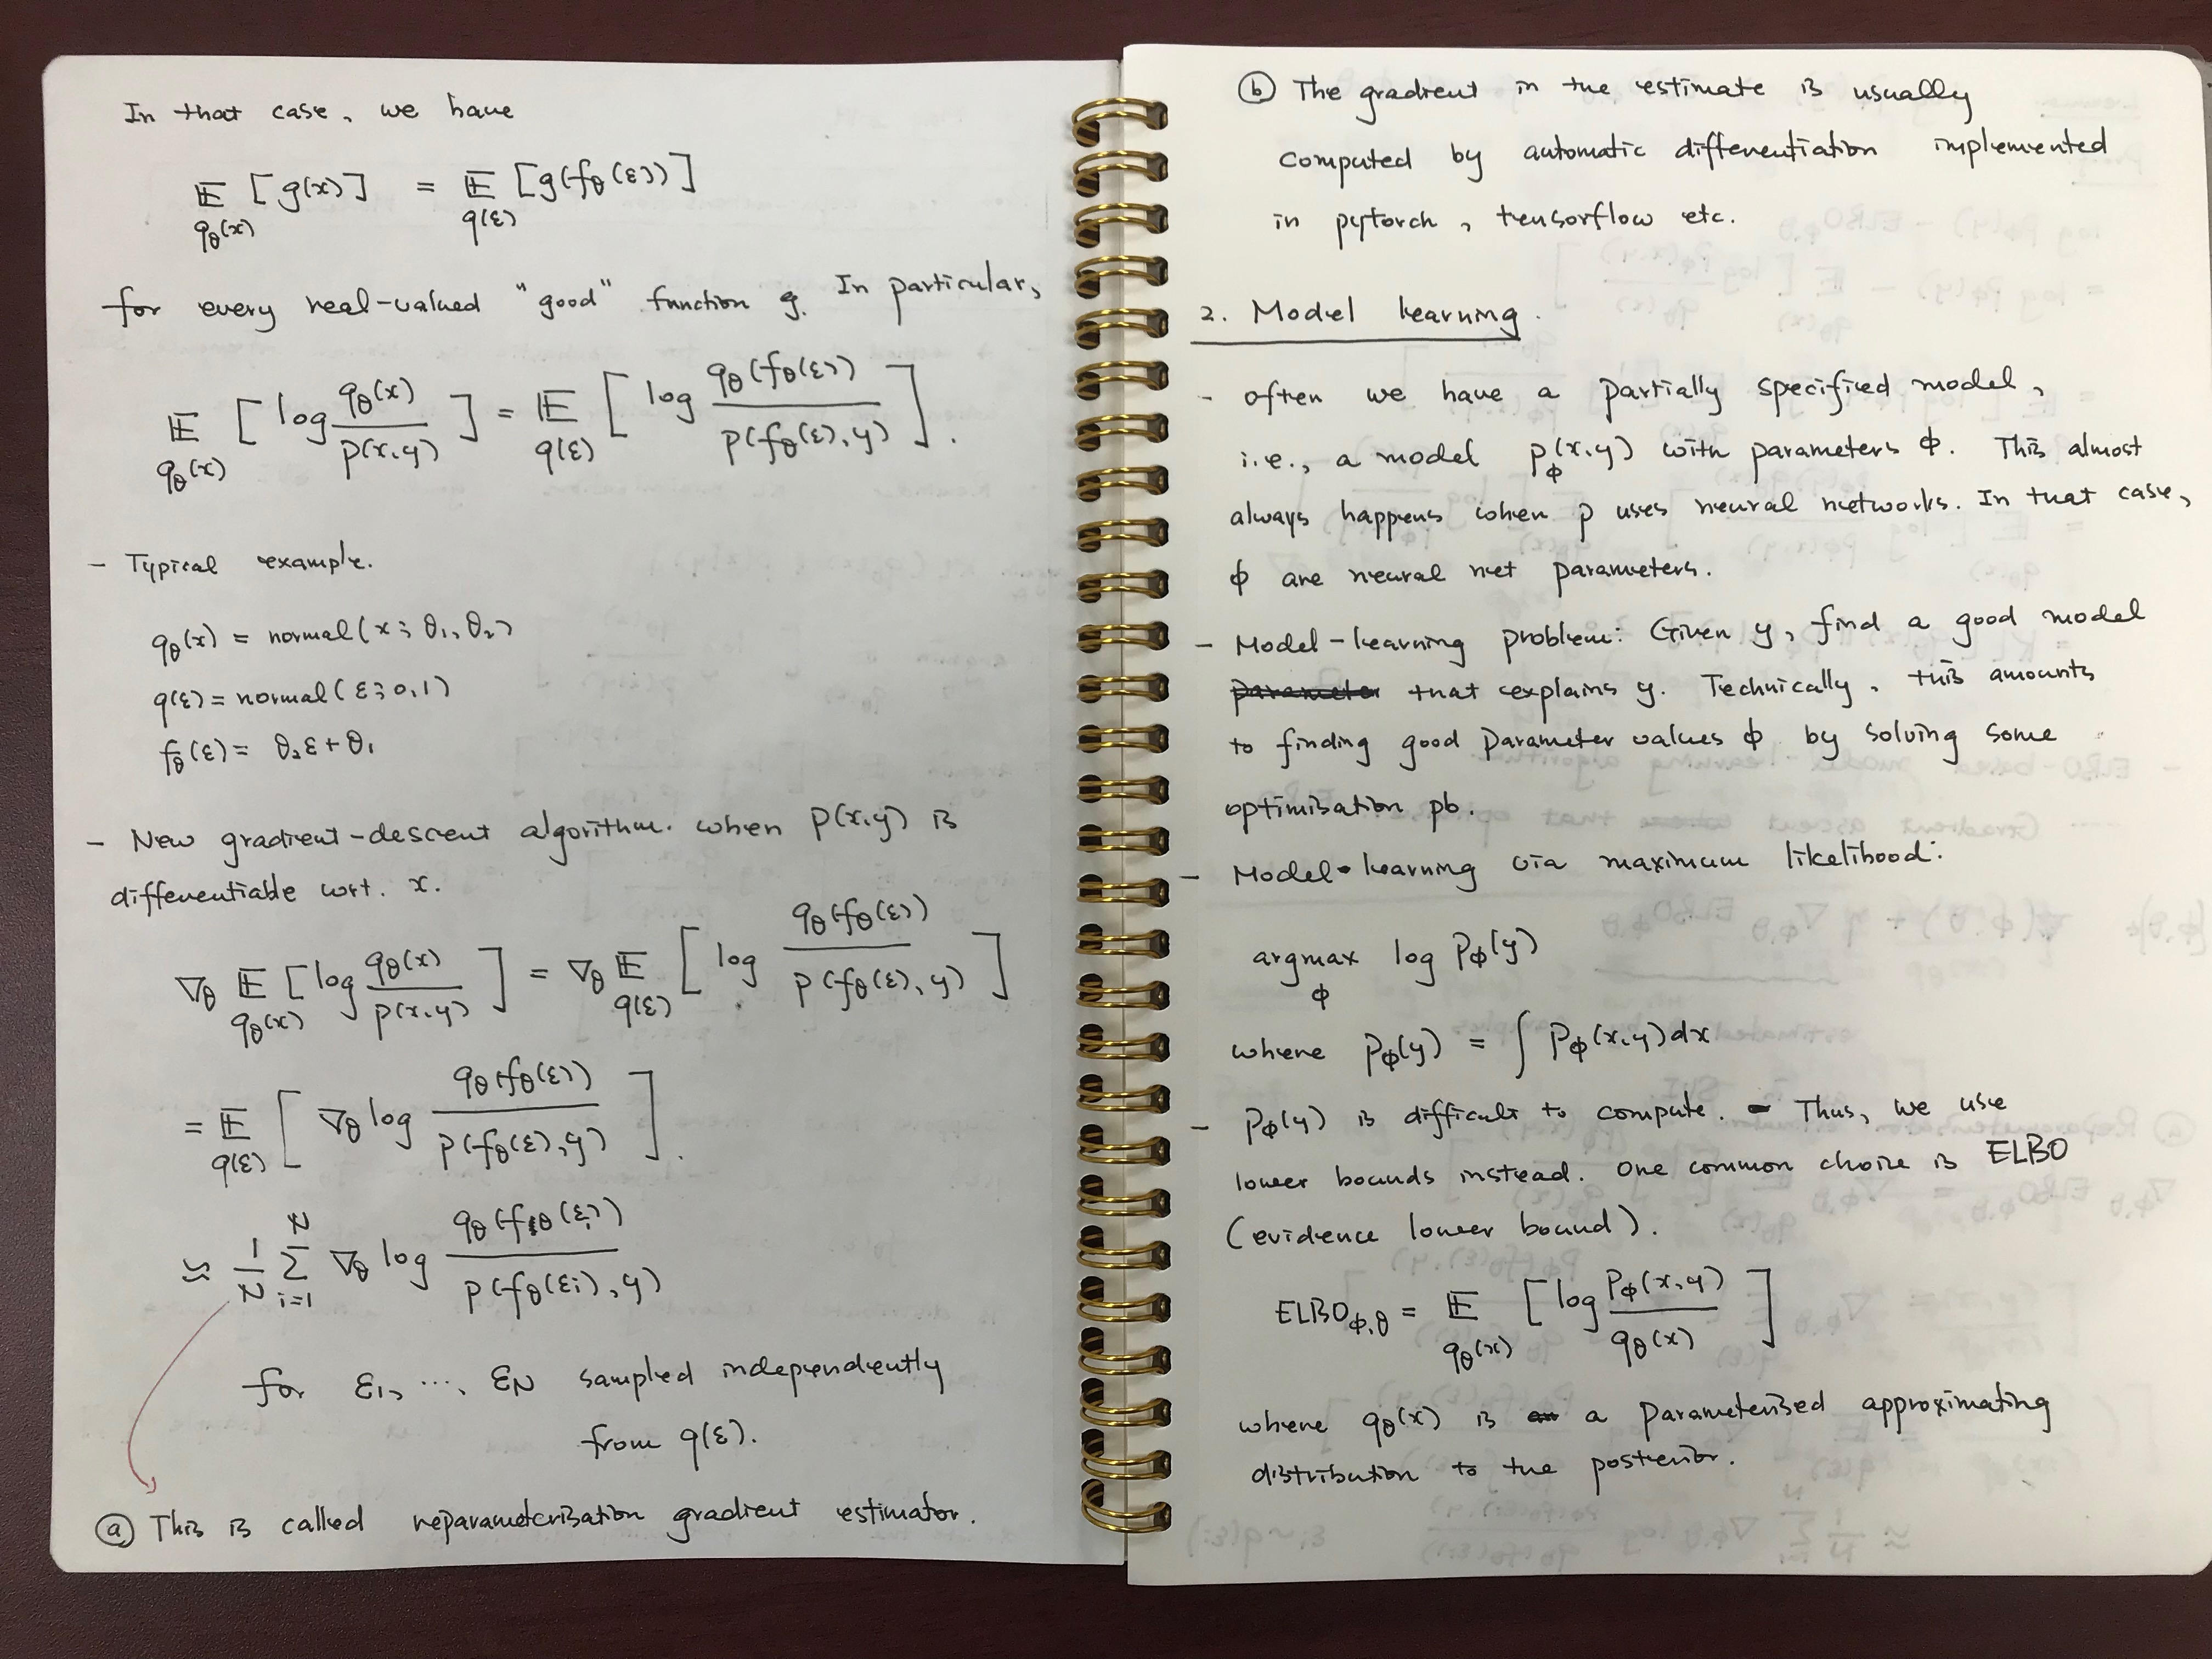 In that case, we have
𝔼_{qθ(x)} [g(x)] = 𝔼_{q(ε)} [g(fθ(ε))]
for every real-valued "good" function g. In particular,
𝔼_{qθ(x)} [log qθ(x) / p(x,y)] = 𝔼_{q(ε)} [log qθ(fθ(ε)) / p(fθ(ε),y)].
- Typical example.
qθ(x) = normal(x; θ₁, θ₂)
q(ε) = normal(ε; 0,1)
fθ(ε) = θ₂ε + θ₁
- New gradient-descent algorithm. when p(x,y) is
differentiable wrt. x.
∇θ 𝔼_{qθ(x)} [log qθ(x) / p(x,y)] = ∇θ 𝔼_{q(ε)} [log qθ(fθ(ε)) / p(fθ(ε),y)]
= 𝔼_{q(ε)} [∇θ log qθ(fθ(ε)) / p(fθ(ε),y)].
≃ 1/N Σ_{i=1}^{N} ∇θ log qθ(fθ(εi)) / p(fθ(εi),y)
for ε₁, ..., εN sampled independently
from q(ε).
ⓐ This is called reparameterisation gradient estimator.
ⓑ The gradient in the estimate is usually
computed by automatic differentiation implemented
in pytorch, tensorflow etc.
2. Model learning.
- Often we have a partially specified model,
i.e., a model pϕ(x,y) with parameters ϕ. This almost
always happens when p uses neural networks. In that case,
ϕ are neural net parameters.
- Model-learning problem: Given y, find a good model
parameter that explains y. Technically, this amounts
to finding good parameter values ϕ by solving some
optimisation pb.
- Model-learning via maximum likelihood:
argmax_ϕ log pϕ(y)
where pϕ(y) = ∫ pϕ(x,y)dx
- pϕ(y) is difficult to compute. Thus, we use
lower bounds instead. One common choice is ELBO
(evidence lower bound).
ELBOϕ,θ = 𝔼_{qθ(x)} [log pϕ(x,y) / qθ(x)]
where qθ(x) is an a parameterised approximating
distribution to the posterior.